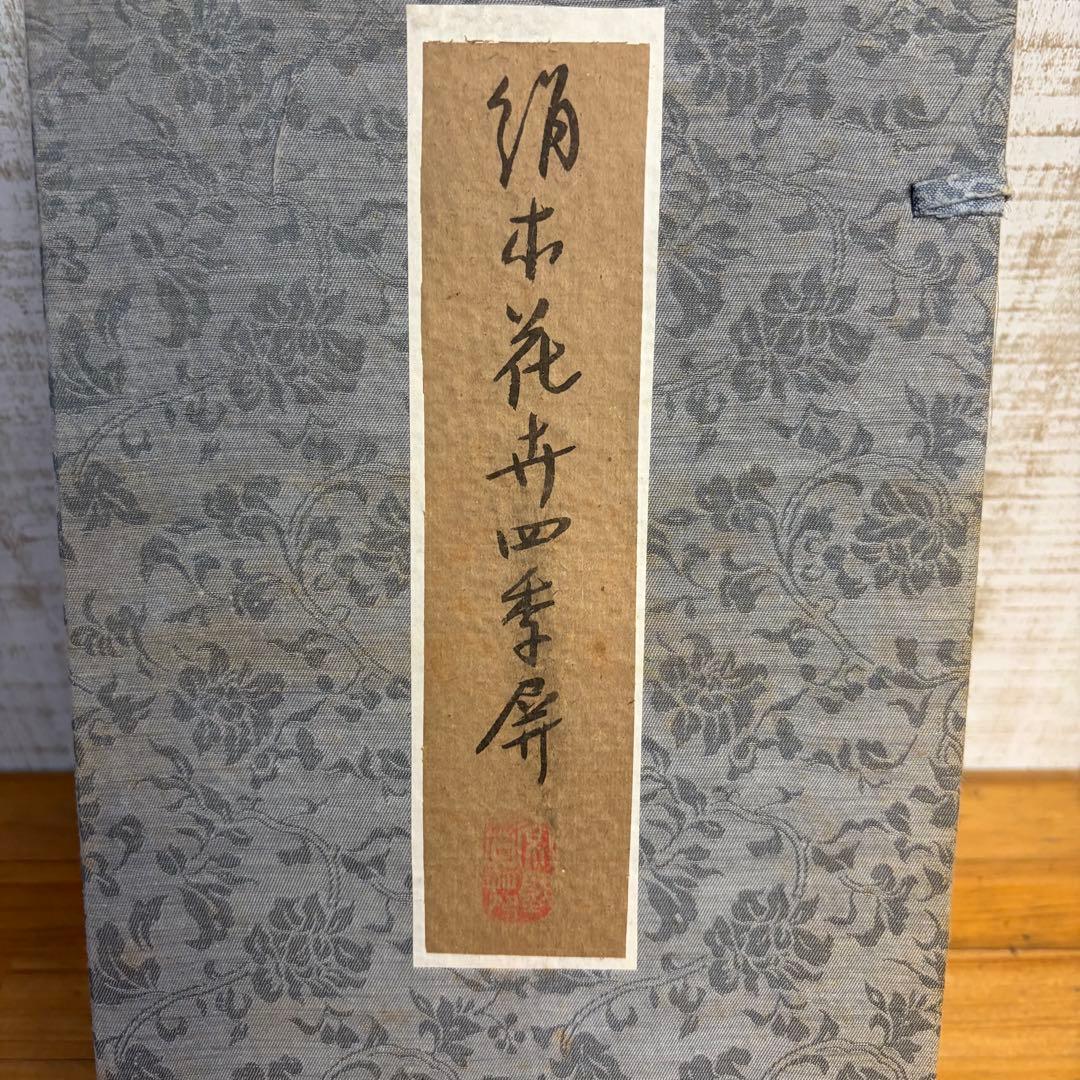 絹本花卉四季屏